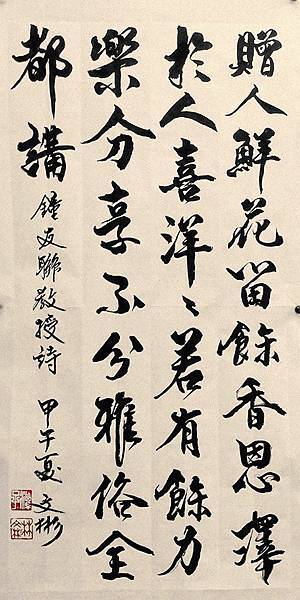 贈人鮮花留餘香恩澤
於人喜洋〻若有餘力
樂分享不分雅俗全
都講
鐘友聯教授詩 甲午夏 文彬